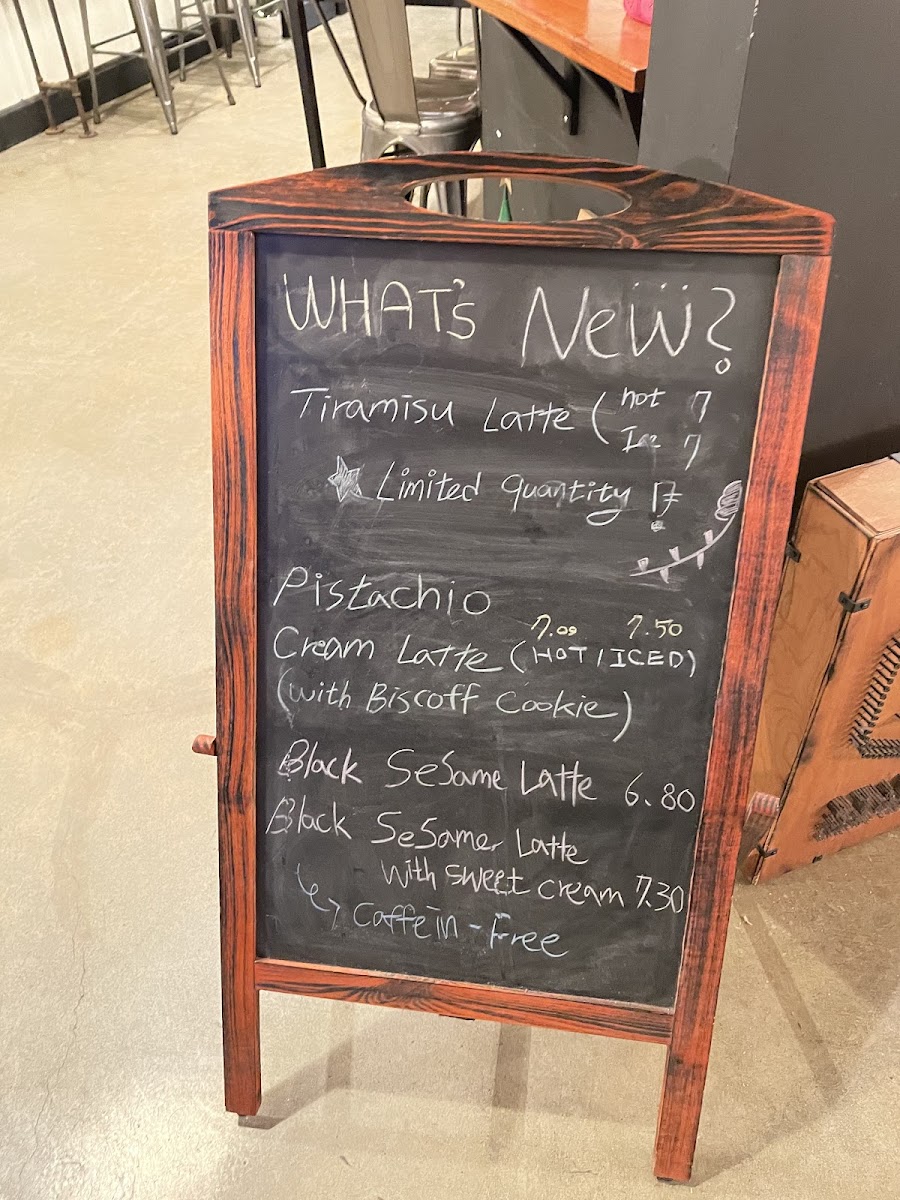 WHAT's New?
Tiramisu Latte ( hot 7
Ice 7
Limited quantity !
Pistachio
7.00 7.50
Cream Latte (HOT / ICED)
(with Biscoff Cookie)
Black Sesame Latte 6.80
Black Sesame Latte
with sweet cream 7.30
Caffein-Free